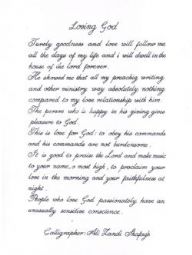 Loving God
Surely goodness and love will follow me
all the days of my life and i will dwell in the
house of the lord forever.
He showed me that all my preaching writing
and other ministry was absolutely nothing
compared to my love relationship with him.
The person who is happy in his giving give
pleasure to God.
This is love for God: to obey his commands
and his commands are not burdensome.
It is good to praise the Lord and make music
to your name, o most high, to proclaim your
love in the morning and your faithfulness at
night
People who love God passionately have an
unusually sensitive conscience.
Calligrapher: Ali Zandi